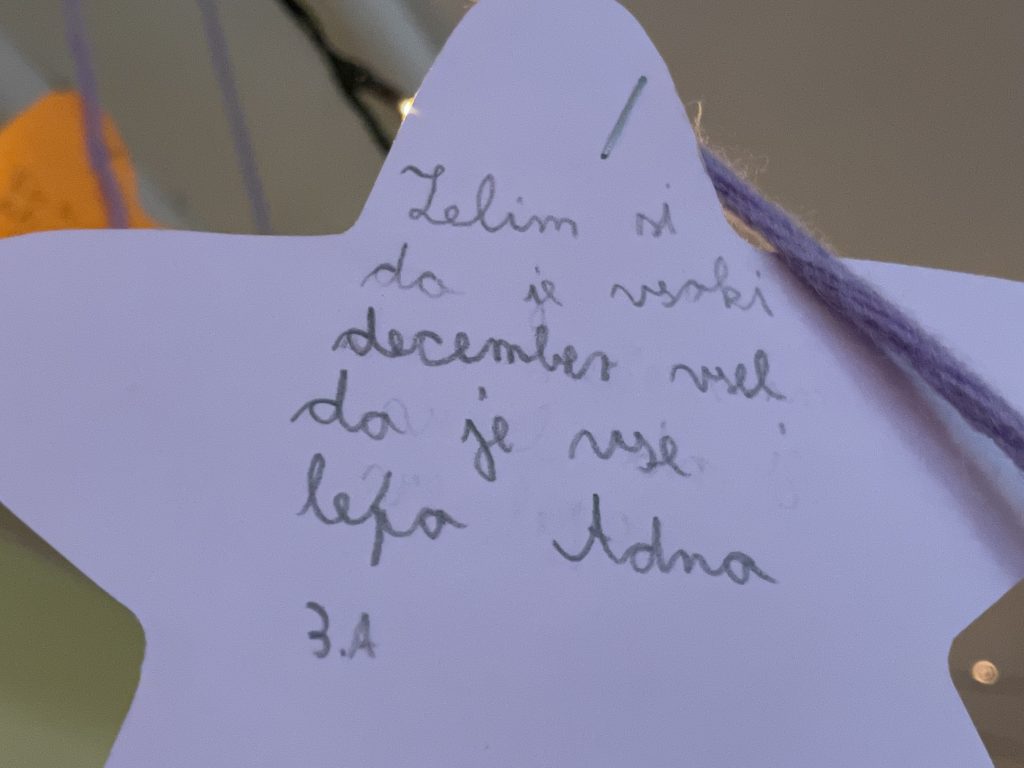 Zelim si
da je vsaki
december vsel
da je vse
lepa Adna
3.A